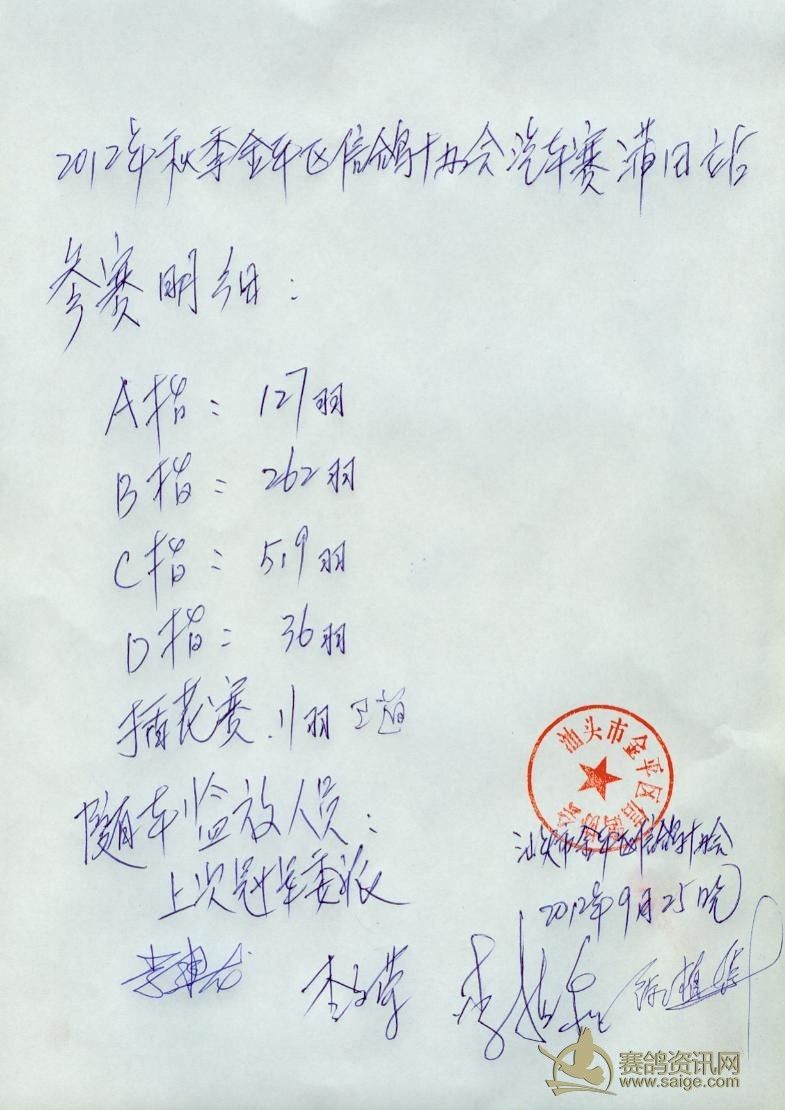 2012年秋季金平区信鸽协会汽车赛莆田站
参赛明细：
A指：127羽
B指：262羽
C指：519羽
D指：36羽
插花赛.11羽
随车监放人员：
上次冠军委派
汕头市金平区信鸽协会
汕头市金平区信鸽协会
2012年9月25晚
赛鸽资讯网
www.saige.com